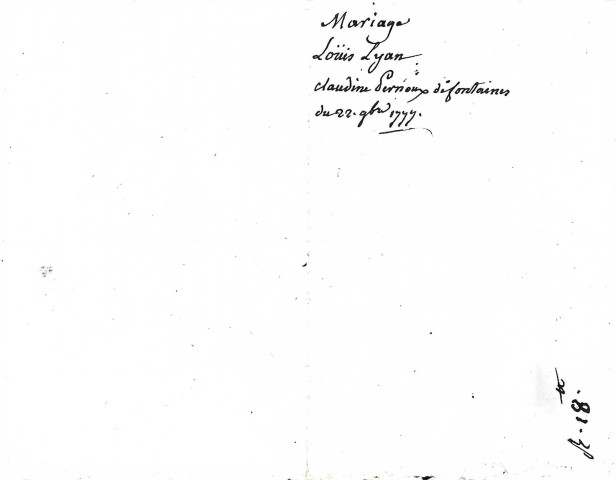 Mariage
Loüis Lyan
claudine Pernoux de fontaines
du 22. 9bre 1777.
18.